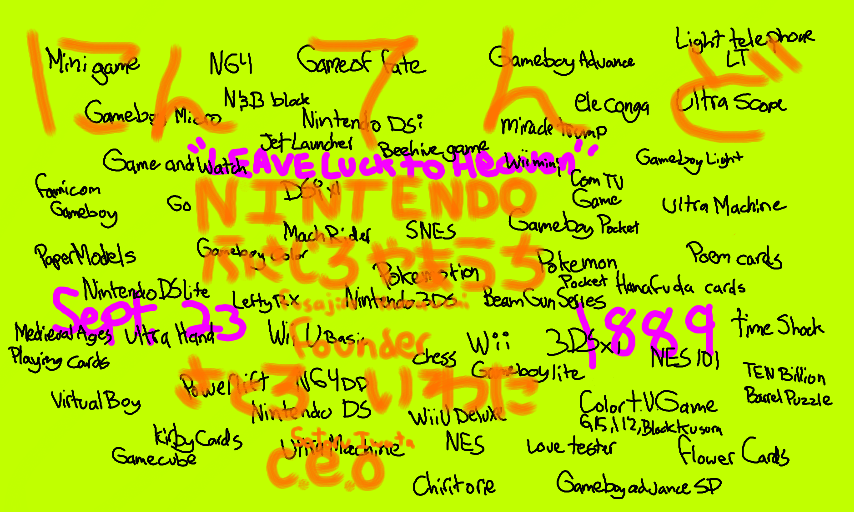 にんてんど
Light telephone
LT
Mini game
N64
Game of fate
Gameboy Advance
Gameboy Micro
N&B block
Nintendo DSi
ele conga
Ultra Scope
Jet Launcher
Beehive game
miracle trump
Game and Watch
"LEAVE Luck to Heaven"
Wii mini
Gameboy Light
Famicom
Gameboy
Go
DSi xl
Com TV
Game
Ultra Machine
NINTENDO
Mach Rider
SNES
Gameboy Pocket
Paper Models
Gameboy Color
ふさじろ やまうち
Pokemotion
Pokemon
Pocket
Poem cards
Nintendo DS lite
Lefty Rx
Fusajiro Yamauchi
Nintendo 3DS
Beam Gun Series
Hanafuda cards
Sept 23
1889
Medieval Ages
Playing Cards
Ultra Hand
Wii U Basic
Founder
chess
Wii
3DS xl
NES 101
Time Shock
Power lift
N64 DD
さとろ いわた
Gameboy lite
TEN Billion
Barrel Puzzle
Virtual Boy
Nintendo DS
Wii U Deluxe
Color T.V Game
6,15,112, Block Kusura
Kirby Cards
Satoru Iwata
Unira Machine
NES
Love tester
Flower Cards
Gamecube
C.e.o
Chiritorie
Gameboy advance SP